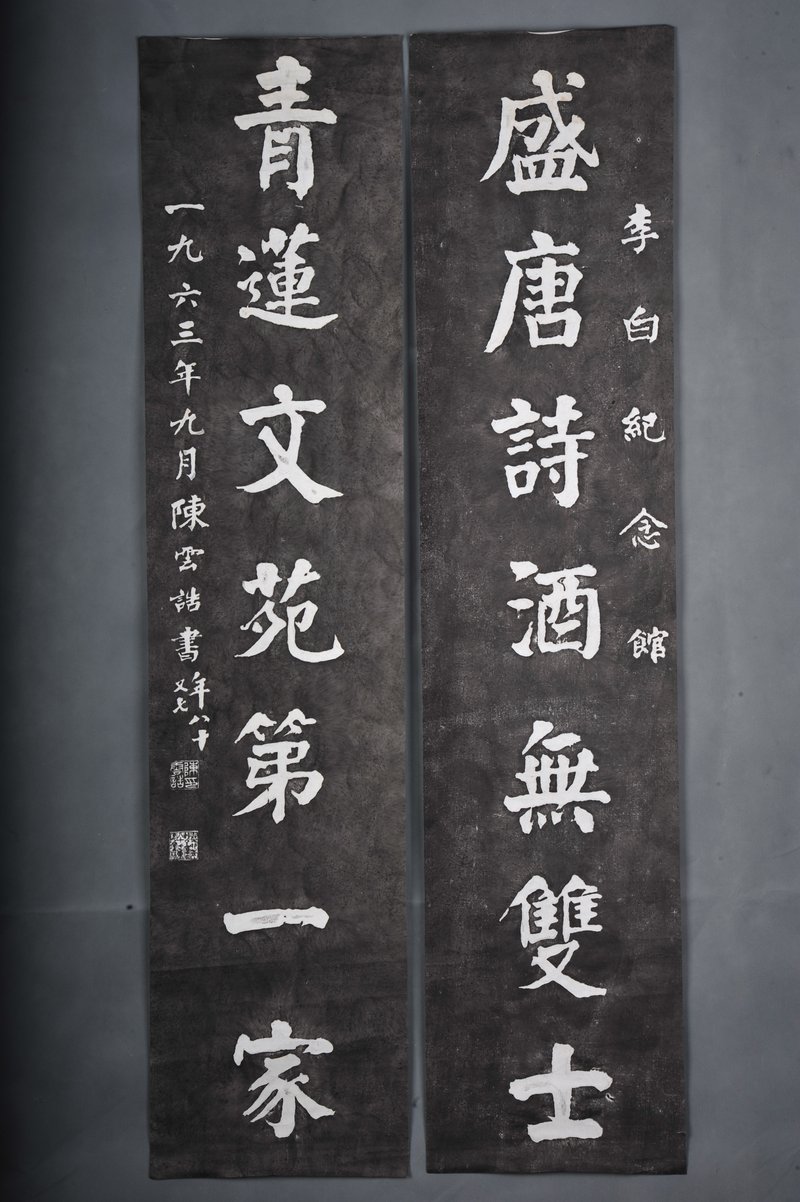 李白紀念館
盛唐詩酒無雙士
青蓮文苑第一家
一九六三年九月陳雲誥書年八十又七